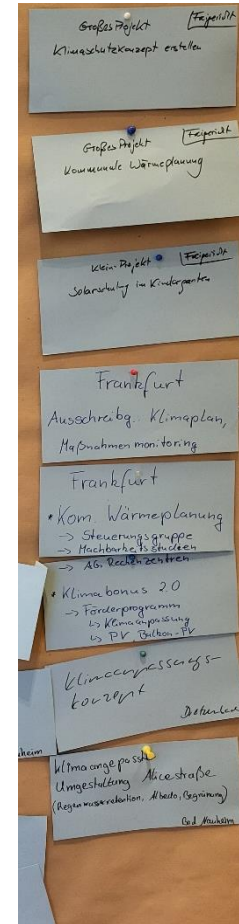 Großes Projekt [Freigericht
Klimaschutzkonzept erstellen
Großes Projekt [Freigericht
Kommunale Wärmeplanung
Klein-Projekt [Freigericht
Solarschulung im Kindergarten
Frankfurt
Ausschreibg. Klimaplan,
Maßnahmenmonitoring
Frankfurt
• Kom. Wärmeplanung
-> Steuerungsgruppe
-> Machbarkeitsstudien
-> AG Rechenzentren
• Klimabonus 2.0
-> Förderprogramm
↳ Klimaanpassung
↳ PV Balkon-PV
Klimaanpassungs-
konzept
heim
Klimaangepasste
Umgestaltung Alicestraße
(Regenwasserretention, Albedo, Begrünung)
Bad Nauheim